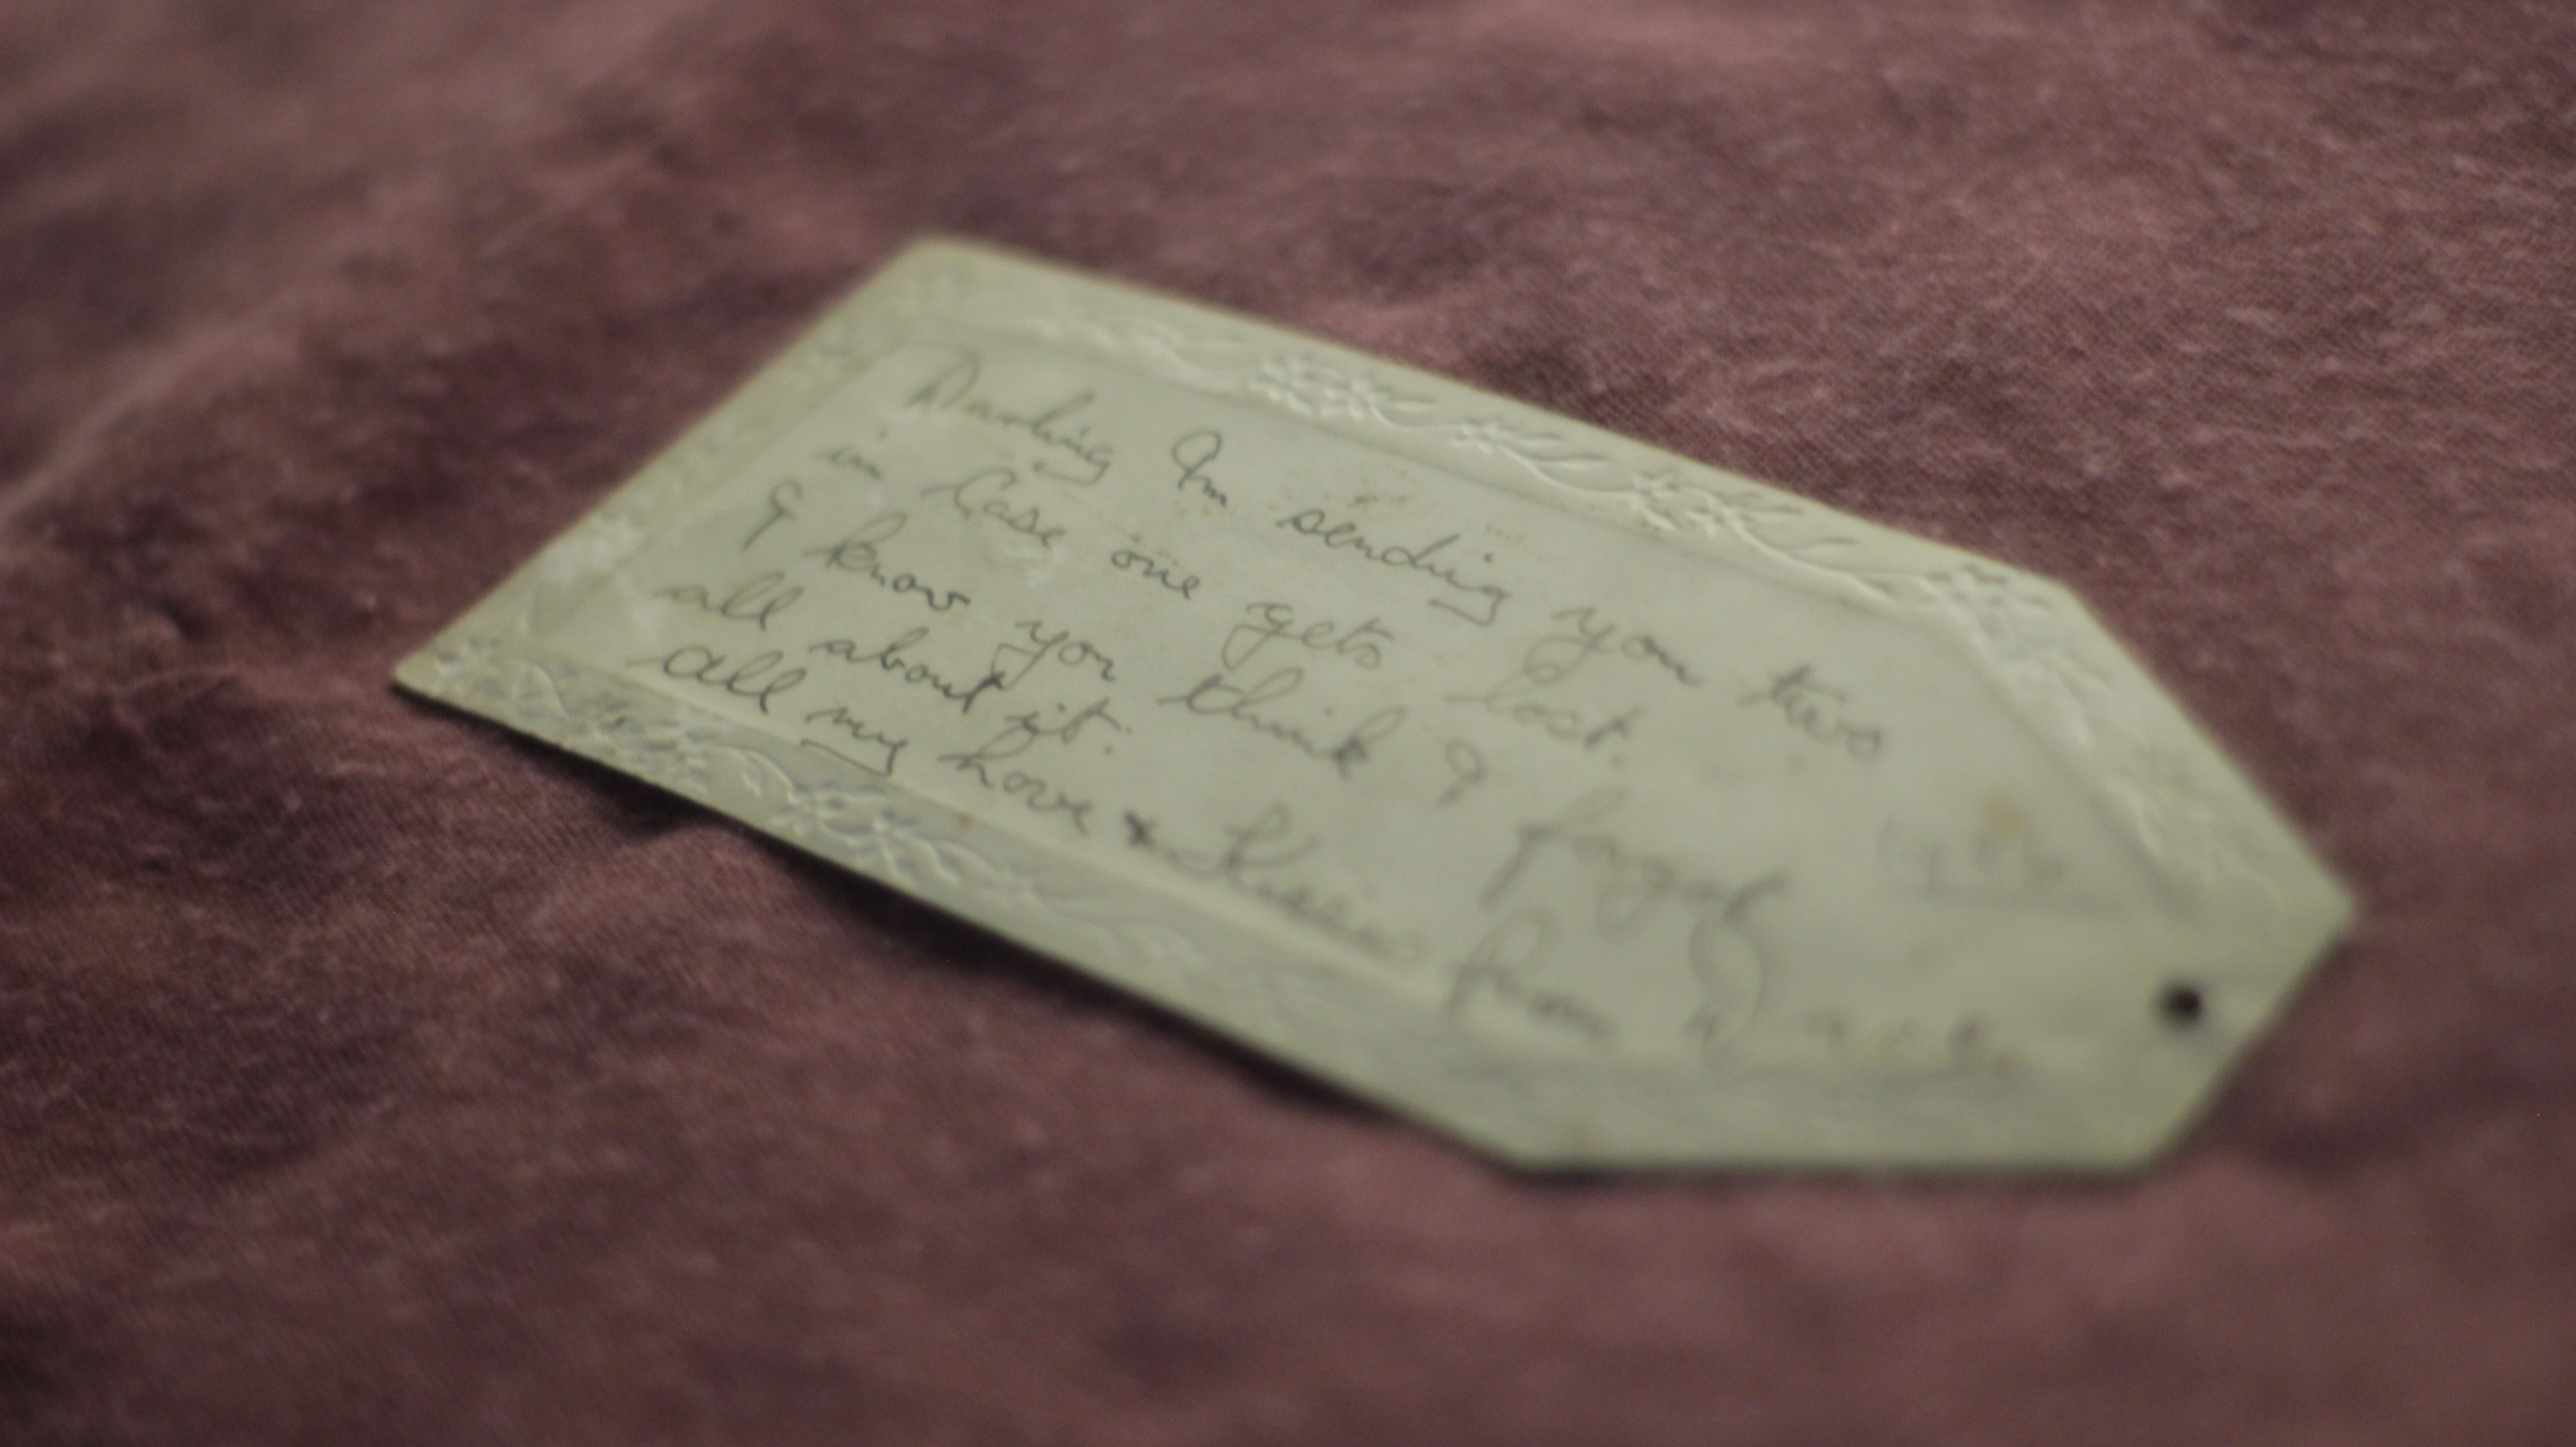 Darling Im sending you two
in Case one gets lost.
& know you think I forgot
all about it.
all my love & Kisses from